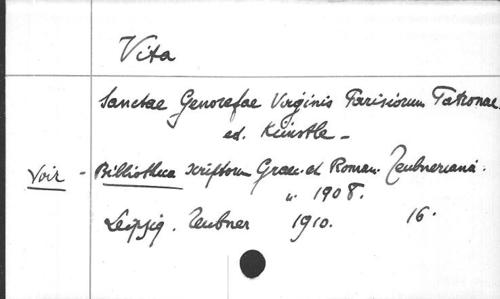 Vita
Sanctae Genovefae Virginis Parisiorum Patronae
ed. Künstle -
Voir - Bibliotheca scriptorum Graec. et Roman. Teubneriana.
" 1908.
Leipzig. Teubner 1910. 16.